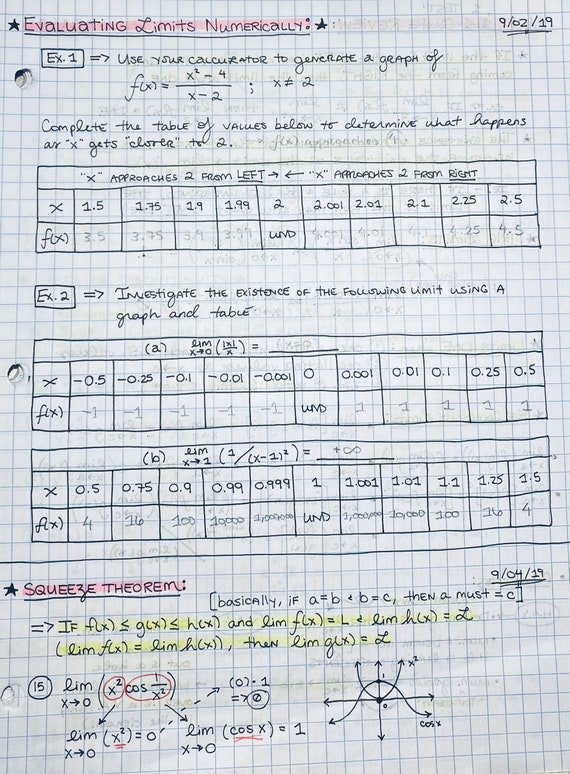 ★ EVALUATING LIMITS NUMERICALLY: ★ 9/02/19
Ex. 1 => USE YOUR CALCULATOR TO GENERATE A GRAPH OF
f(x) = x² - 4 / x - 2 ; x ≠ 2
Complete the table of values below to determine what happens
as "x" gets "closer" to 2.
"X" APPROACHES 2 FROM LEFT → ← "X" APPROACHES 2 FROM RIGHT
x 1.5 1.75 1.9 1.99 2 2.001 2.01 2.1 2.25 2.5
f(x) 3.5 3.75 3.9 3.99 UND 4.001 4.01 4.1 4.25 4.5
Ex. 2 => INVESTIGATE THE EXISTENCE OF THE FOLLOWING LIMIT USING A
graph and table
(a) lim x→0 (|x|/x) =
x -0.5 -0.25 -0.1 -0.01 -0.001 0 0.001 0.01 0.1 0.25 0.5
f(x) -1 -1 -1 -1 -1 UND 1 1 1 1 1
(b) lim x→1 (1/(x-1)²) = +∞
x 0.5 0.75 0.9 0.99 0.999 1 1.001 1.01 1.1 1.25 1.5
f(x) 4 16 100 10,000 1,000,000 UND 1,000,000 10,000 100 16 4
9/04/19
★ SQUEEZE THEOREM:
[basically, IF a=b & b=c, THEN a must = c]
=> IF f(x) ≤ g(x) ≤ h(x) and lim f(x) = L & lim h(x) = L
(lim f(x) = lim h(x)), then lim g(x) = L
15 lim x→0 (x² cos 1/x²) (0)·1
=> 0
lim x→0 (x²) = 0 lim x→0 (cos x) = 1
x²
1
0
cos x